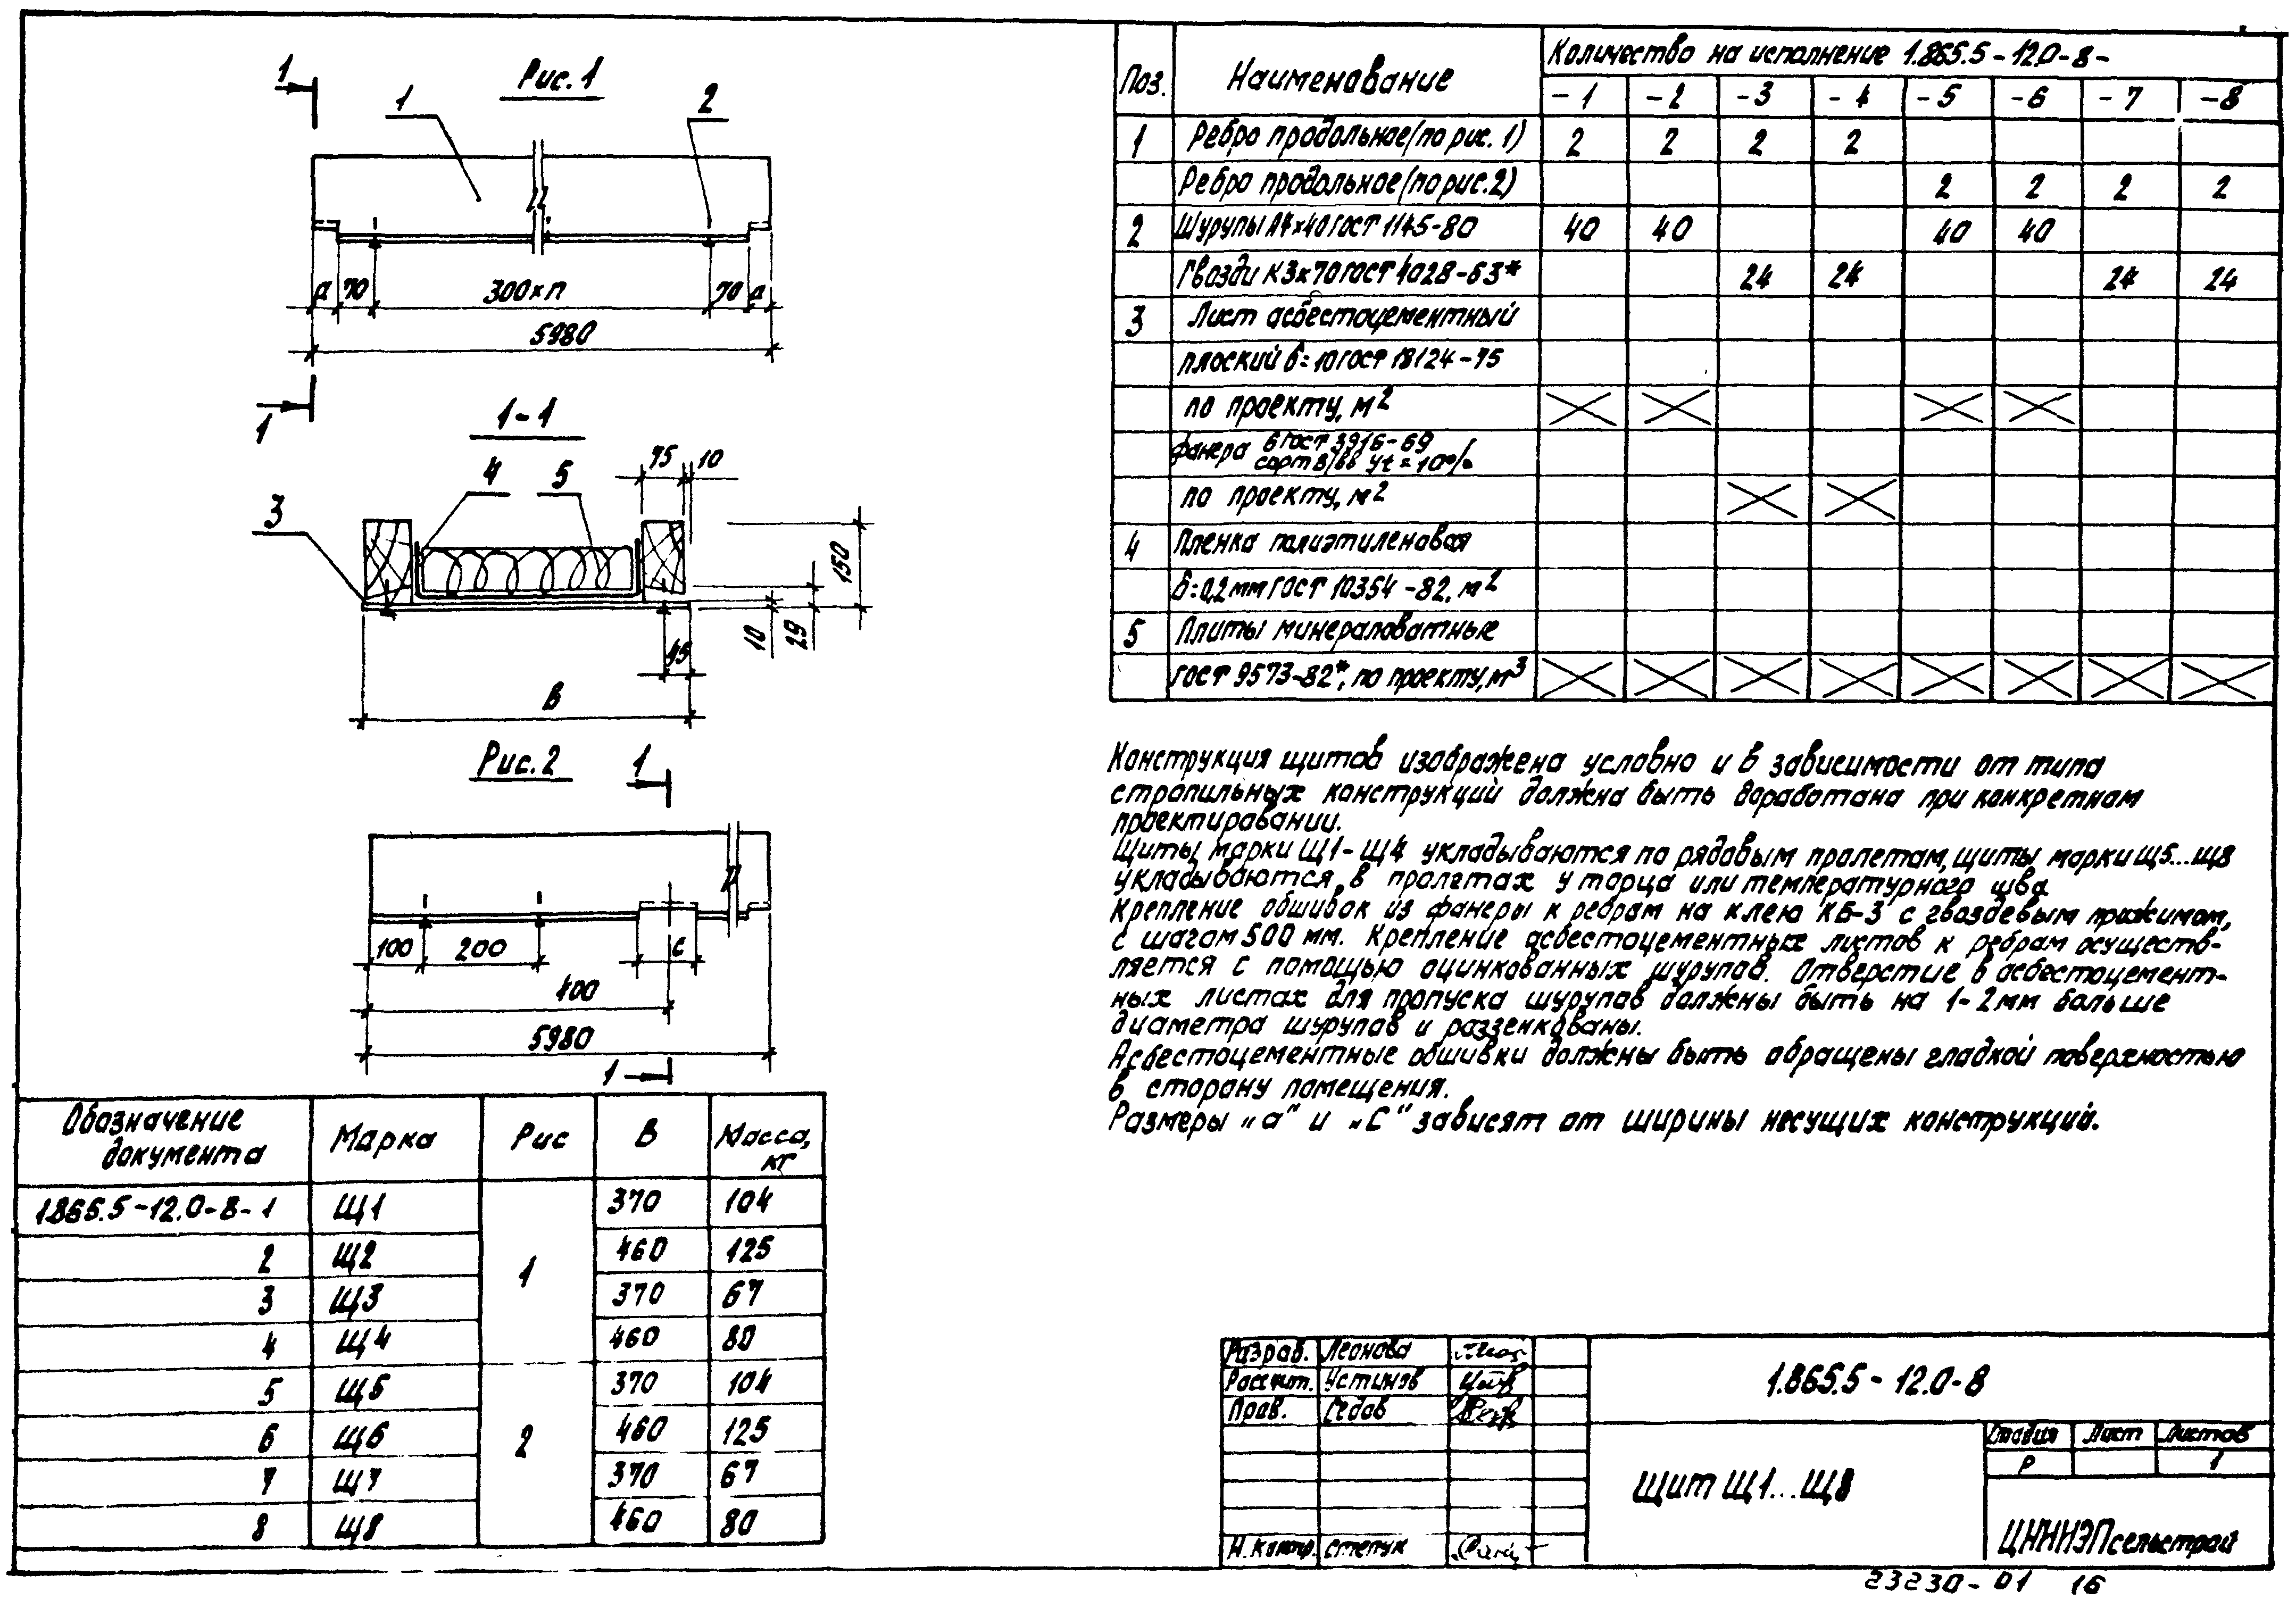 Рис. 1
1
1
2
а
70
300×п
70
а
5980
1
1-1
4
5
75
10
3
150
10
29
45
В
Рис. 2
1
100
200
с
400
5980
1
Обозначение документа | Марка | Рис | В | Масса, кг
1.865.5-12.0-8-1 | Щ1 | 1 | 370 | 104
2 | Щ2 | 460 | 125
3 | Щ3 | 370 | 67
4 | Щ4 | 460 | 80
5 | Щ5 | 2 | 370 | 104
6 | Щ6 | 460 | 125
7 | Щ7 | 370 | 67
8 | Щ8 | 460 | 80
Поз. | Наименование | Количество на исполнение 1.865.5-12.0-8-
-1 | -2 | -3 | -4 | -5 | -6 | -7 | -8
1 | Ребро продольное (по рис. 1) | 2 | 2 | 2 | 2
Ребро продольное (по рис. 2) | 2 | 2 | 2 | 2
2 | Шурупы А4×40 ГОСТ 1145-80 | 40 | 40 | 40 | 40
Гвозди К3×70 ГОСТ 4028-63* | 24 | 24 | 24 | 24
3 | Лист асбестоцементный
плоский б=10 ГОСТ 18124-75
по проекту, м2
Фанера 6 ГОСТ 3916-69
сорт В/ВВ Yt=10%
по проекту, м2
4 | Пленка полиэтиленовая
б=0,2мм ГОСТ 10354-82, м2
5 | Плиты минераловатные
ГОСТ 9573-82*, по проекту, м3
Конструкция щитов изображена условно и в зависимости от типа
стропильных конструкций должна быть доработана при конкретном
проектировании.
Щиты марки Щ1-Щ4 укладываются по рядовым пролетам, щиты марки Щ5...Щ8
укладываются в пролетах у торца или температурного шва
Крепление обшивок из фанеры к ребрам на клею КБ-3 с гвоздевым прижимом,
с шагом 500 мм. Крепление асбестоцементных листов к ребрам осуществ-
ляется с помощью оцинкованных шурупов. Отверстие в асбестоцемент-
ных листах для пропуска шурупов должны быть на 1-2мм больше
диаметра шурупов и раззенкованы.
Асбестоцементные обшивки должны быть обращены гладкой поверхностью
в сторону помещения.
Размеры „а" и „С" зависят от ширины несущих конструкций.
Разраб. | Леонова
Рассчит. | Устинов
Пров. | Седов
Н. контр. | Степук
1.865.5-12.0-8
Щит Щ1...Щ8
Стадия | Лист | Листов
Р | 1
ЦНИИЭПсельстрой
23230-01 16